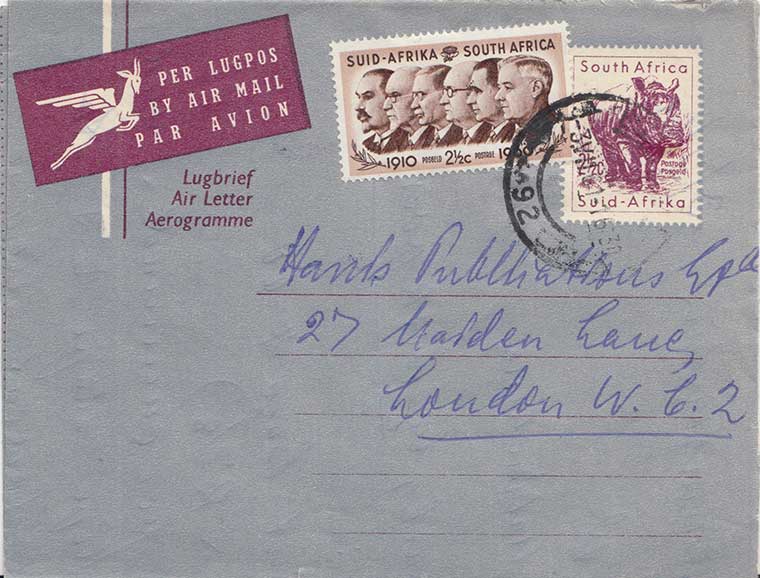 PER LUGPOS
BY AIR MAIL
PAR AVION
Lugbrief
Air Letter
Aerogramme
SUID-AFRIKA SOUTH AFRICA
1910 POSGELD 2½c POSTAGE
South Africa
Postage
Posgeld
Suid-Afrika
26
Publications
27 Maiden Lane,
London W.C.2